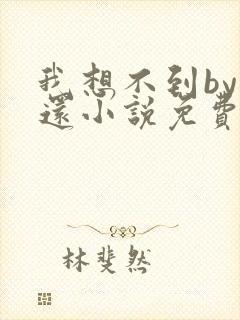 我想不到by
還小說免費
林斐然